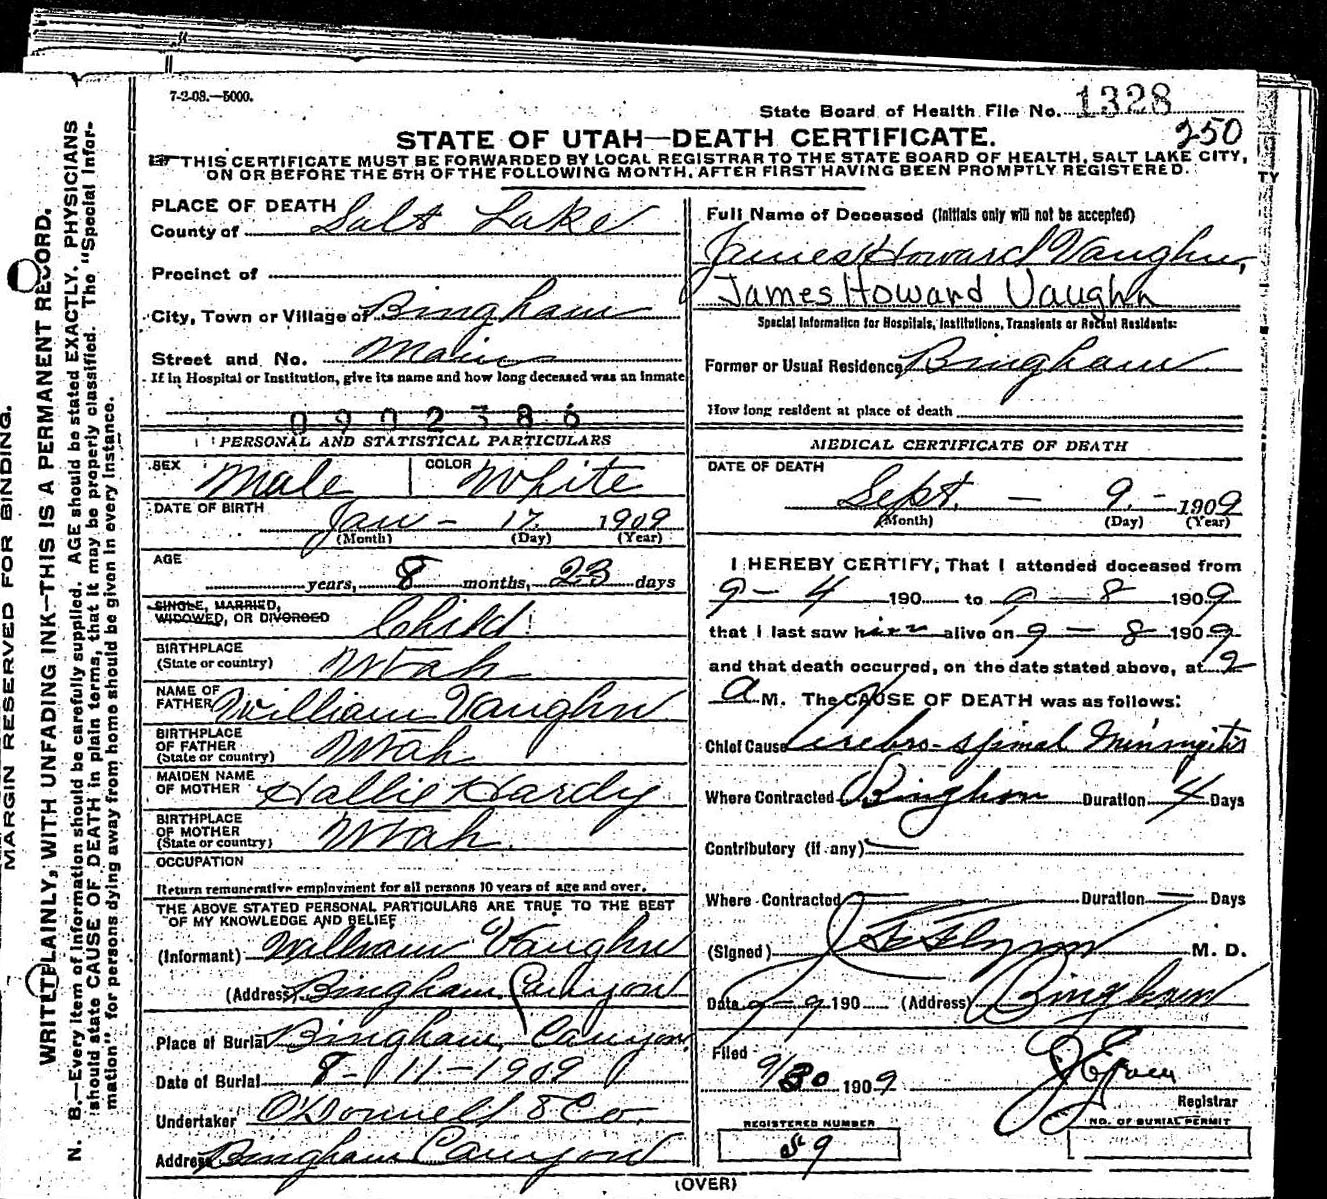 7-2-08.—5000.
State Board of Health File No. 1328
STATE OF UTAH—DEATH CERTIFICATE. 250
THIS CERTIFICATE MUST BE FORWARDED BY LOCAL REGISTRAR TO THE STATE BOARD OF HEALTH, SALT LAKE CITY,
ON OR BEFORE THE 5TH OF THE FOLLOWING MONTH, AFTER FIRST HAVING BEEN PROMPTLY REGISTERED.
MARGIN RESERVED FOR BINDING.
WRITE PLAINLY, WITH UNFADING INK—THIS IS A PERMANENT RECORD.
N. B.—Every item of information should be carefully supplied. AGE should be stated EXACTLY. PHYSICIANS
should state CAUSE OF DEATH in plain terms, that it may be properly classified. The "Special Infor-
mation" for persons dying away from home should be given in every instance.
PLACE OF DEATH
County of Salt Lake
Precinct of
City, Town or Village of Bingham
Street and No. Main
If in Hospital or Institution, give its name and how long deceased was an inmate
0902386
PERSONAL AND STATISTICAL PARTICULARS
SEX Male COLOR White
DATE OF BIRTH Jan - 17 1909
(Month) (Day) (Year)
AGE years, 8 months, 23 days
SINGLE, MARRIED,
WIDOWED, OR DIVORCED Child
BIRTHPLACE
(State or country) Utah
NAME OF
FATHER William Vaughn
BIRTHPLACE
OF FATHER
(State or country) Utah
MAIDEN NAME
OF MOTHER Hallie Hardy
BIRTHPLACE
OF MOTHER
(State or country) Utah
OCCUPATION
Return remunerative employment for all persons 10 years of age and over.
THE ABOVE STATED PERSONAL PARTICULARS ARE TRUE TO THE BEST
OF MY KNOWLEDGE AND BELIEF
(Informant) William Vaughn
(Address) Bingham Canyon
Place of Burial Bingham Canyon
Date of Burial 8-11-1909
Undertaker O'Donnell & Co.
Address Bingham Canyon
Full Name of Deceased (Initials only will not be accepted)
James Howard Vaughn,
James Howard Vaughn
Special Information for Hospitals, Institutions, Transients or Recent Residents:
Former or Usual Residence Bingham
How long resident at place of death
MEDICAL CERTIFICATE OF DEATH
DATE OF DEATH
Sept. — 9 - 1909
(Month) (Day) (Year)
I HEREBY CERTIFY, That I attended deceased from
9 - 4 190 to 9 - 8 1909
that I last saw him alive on 9 - 8 1909
and that death occurred, on the date stated above, at 2
a M. The CAUSE OF DEATH was as follows:
Chief Cause Cerebro-spinal Miningitis
Where Contracted Bingham Duration 4 Days
Contributory (if any)
Where Contracted Duration Days
(Signed) Flynn M. D.
Date 9-9 190 (Address) Bingham
Filed
9/30 1909
Registrar
REGISTERED NUMBER
59
NO. OF BURIAL PERMIT
(OVER)
TY